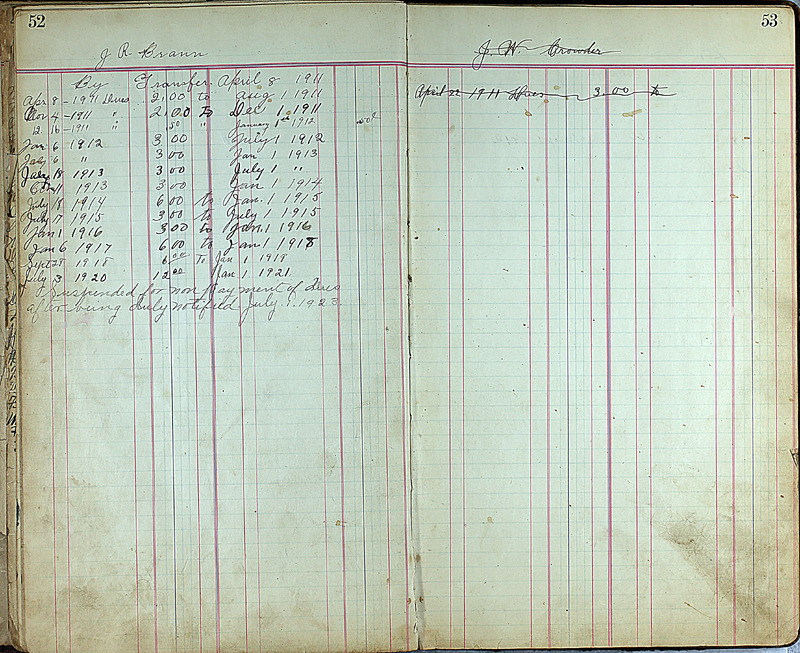 52
J R Brann
By Transfer April 8 1911
Apr 8 - 1911 Dues 2.00 to Aug 1 1911
Nov 4 - 1911 " 2.00 to Dec 1 1911
12 16 - 1911 " 50 " January 1st 1912
Jan 6 1912 3 00 July 1 1912
July 6 " 3 00 Jan 1 1913
1913 3 00 July 1 "
1913 3 00 Jan 1 1914
July 18 1914 6 00 to Jan. 1 1915
July 17 1915 3 00 to July 1 1915
Jan 1 1916 3 00 to Jan. 1 1916
Jan 6 1917 6 00 to Jan 1 1918
Sept 28 1918 6 00 To Jan 1 1919
July 3 1920 12 00 Jan 1 1921
Suspended for non payment of dues
after being duly notified July 1923.
53
J. W. Crowder
April 22 1911 Dues 3.00 to